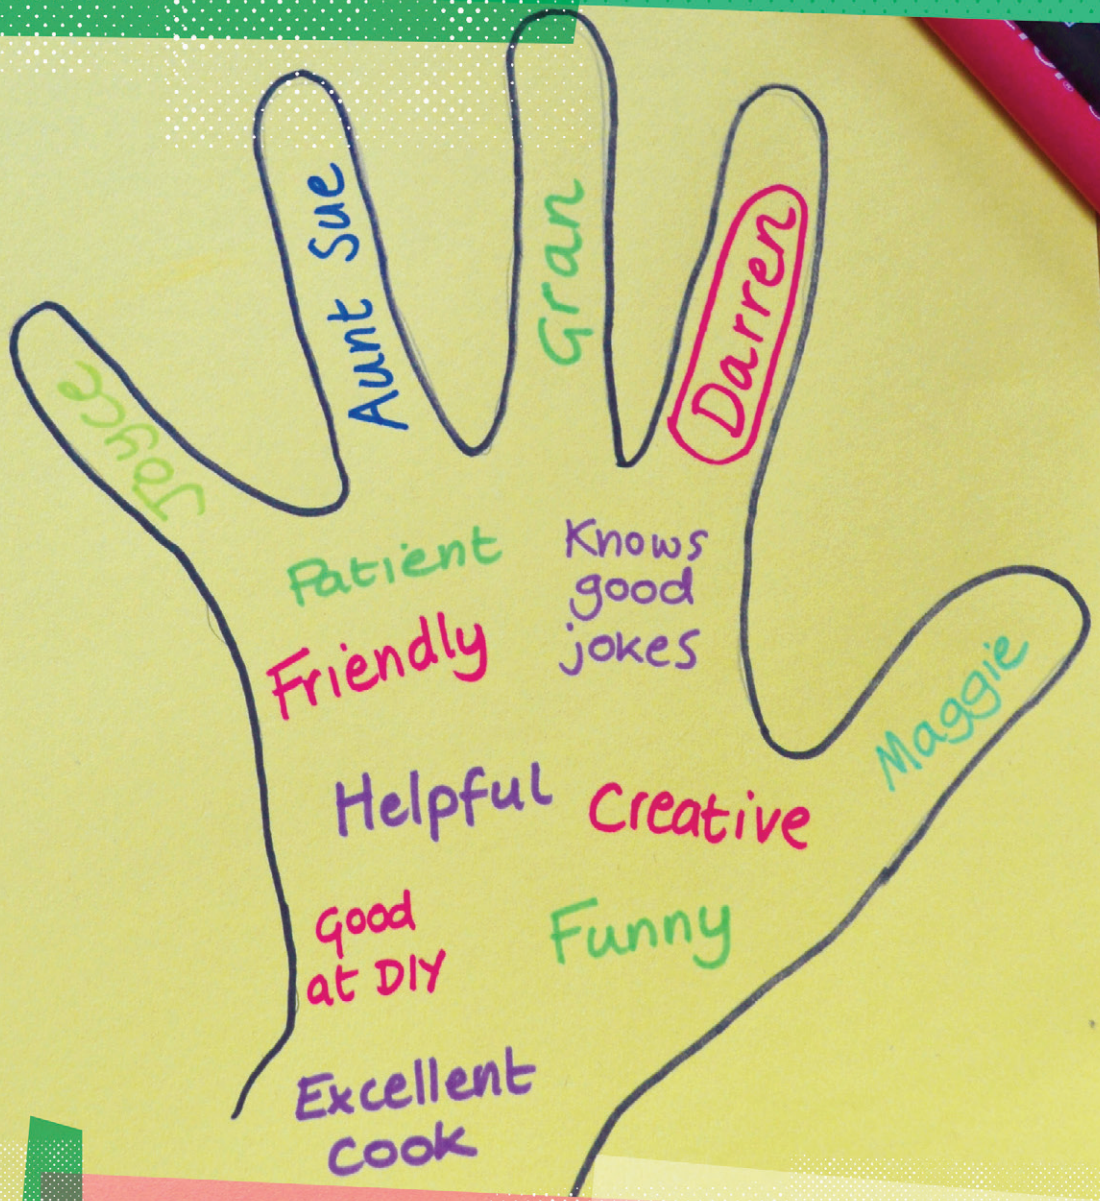 Joyce
Aunt Sue
Gran
Darren
Maggie
Patient
Friendly
Knows
good
jokes
Helpful
Creative
Good
at DIY
Funny
Excellent
cook